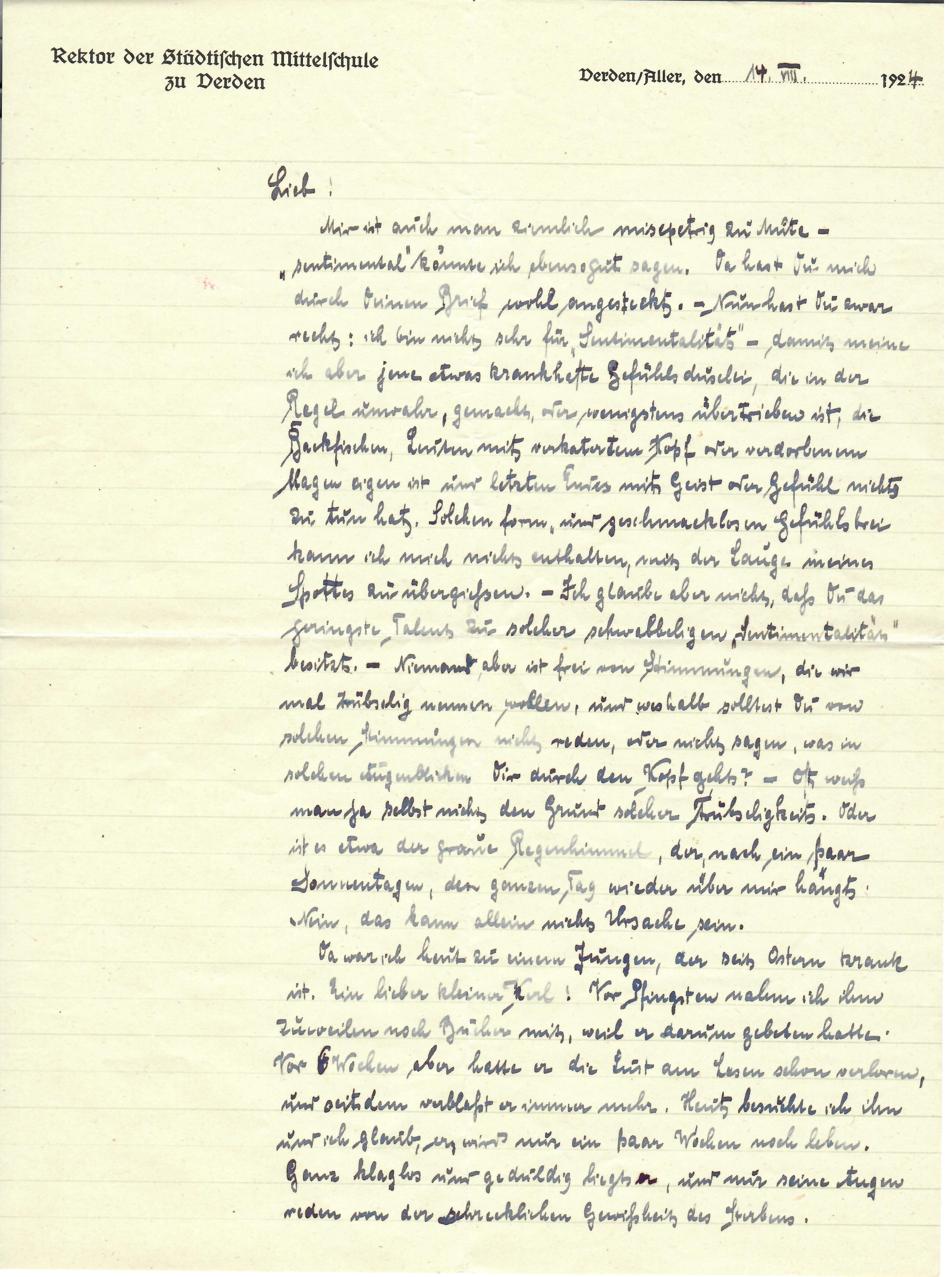 Rektor der Städtischen Mittelschule
zu Verden
Verden/Aller, den 14. VIII. 1924
Lieb !
Mir ist auch man ziemlich misepetrig zu Mute –
„sentimental" könnte ich ebensogut sagen. Da hast Du mich
durch Deinen Brief wohl angesteckt. – Nun hast Du zwar
recht: ich bin nicht sehr für „Sentimentalität" – damit meine
ich aber jene etwas krankhafte Gefühlsduselei, die in der
Regel unwahr, gemacht, oder wenigstens übertrieben ist, die
Backfischen, Leuten mit verkatertem Kopf oder verdorbenem
Magen eigen ist und letzten Endes mit Geist oder Gefühl nichts
zu tun hat. Solchen form- und geschmacklosen Gefühlsbrei
kann ich mich nicht enthalten, mit der Lauge meines
Spottes zu übergießen. – Ich glaube aber nicht, daß Du das
geringste Talent zu solcher schwabbeligen „Sentimentalität"
besitzt. – Niemand aber ist frei von Stimmungen, die wir
mal trübselig nennen wollen, und weshalb solltest Du von
solchen Stimmungen nicht reden, oder nicht sagen, was in
solchen Augenblicken Dir durch den Kopf geht? – Oft weiß
man ja selbst nicht den Grund solcher Trübseligkeit. Oder
ist es etwa der graue Regenhimmel, der, nach ein paar
Sonnentagen, den ganzen Tag wieder über mir hängt.
Nein, das kann allein nicht Ursache sein.
Da war ich heut zu einem Jungen, der seit Ostern krank
ist. Ein lieber kleiner Kerl! Vor Pfingsten nahm ich ihm
zuweilen noch Bücher mit, weil er darum gebeten hatte.
Vor 6 Wochen aber hatte er die Lust am Lesen schon verloren,
und seitdem verblaßt er immer mehr. Heut besuchte ich ihn
und ich glaub, er wird nur ein paar Wochen noch leben.
Ganz klaglos und geduldig liegt er, und nur seine Augen
reden von der schrecklichen Gewißheit des Sterbens.